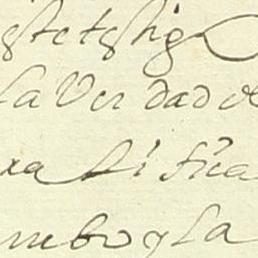 este testig
la Verdad de
ra si fica
mbo y la